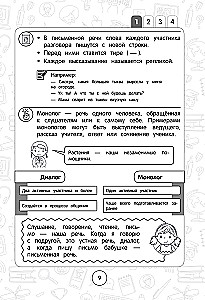 1 2 3 4
• В письменной речи слова каждого участника
разговора пишутся с новой строки.
• Перед ними ставится тире (—).
• Каждое высказывание называется репликой.
Например:
— Смотри, какая большая тыква выросла у меня
на огороде.
— Мама сварит из тыквы вкусную кашу.
Монолог — речь одного человека, обращённая
к слушателям или к самому себе. Примерами
монологов могут быть выступление ведущего,
рассказ учителя, ответ или сочинение ученика.
Растения — наши незаменимые по-
мощники.
Диалог
Монолог
Два активных участника и более
Один активный участник
Создаётся в процессе общения
Чаще всего подготавливается за-
ранее
Слушание, говорение, чтение, пись-
мо — наша речь. Когда я говорю
с подругой, это устная речь, диалог,
а когда пишу письмо бабушке —
письменная речь.
9